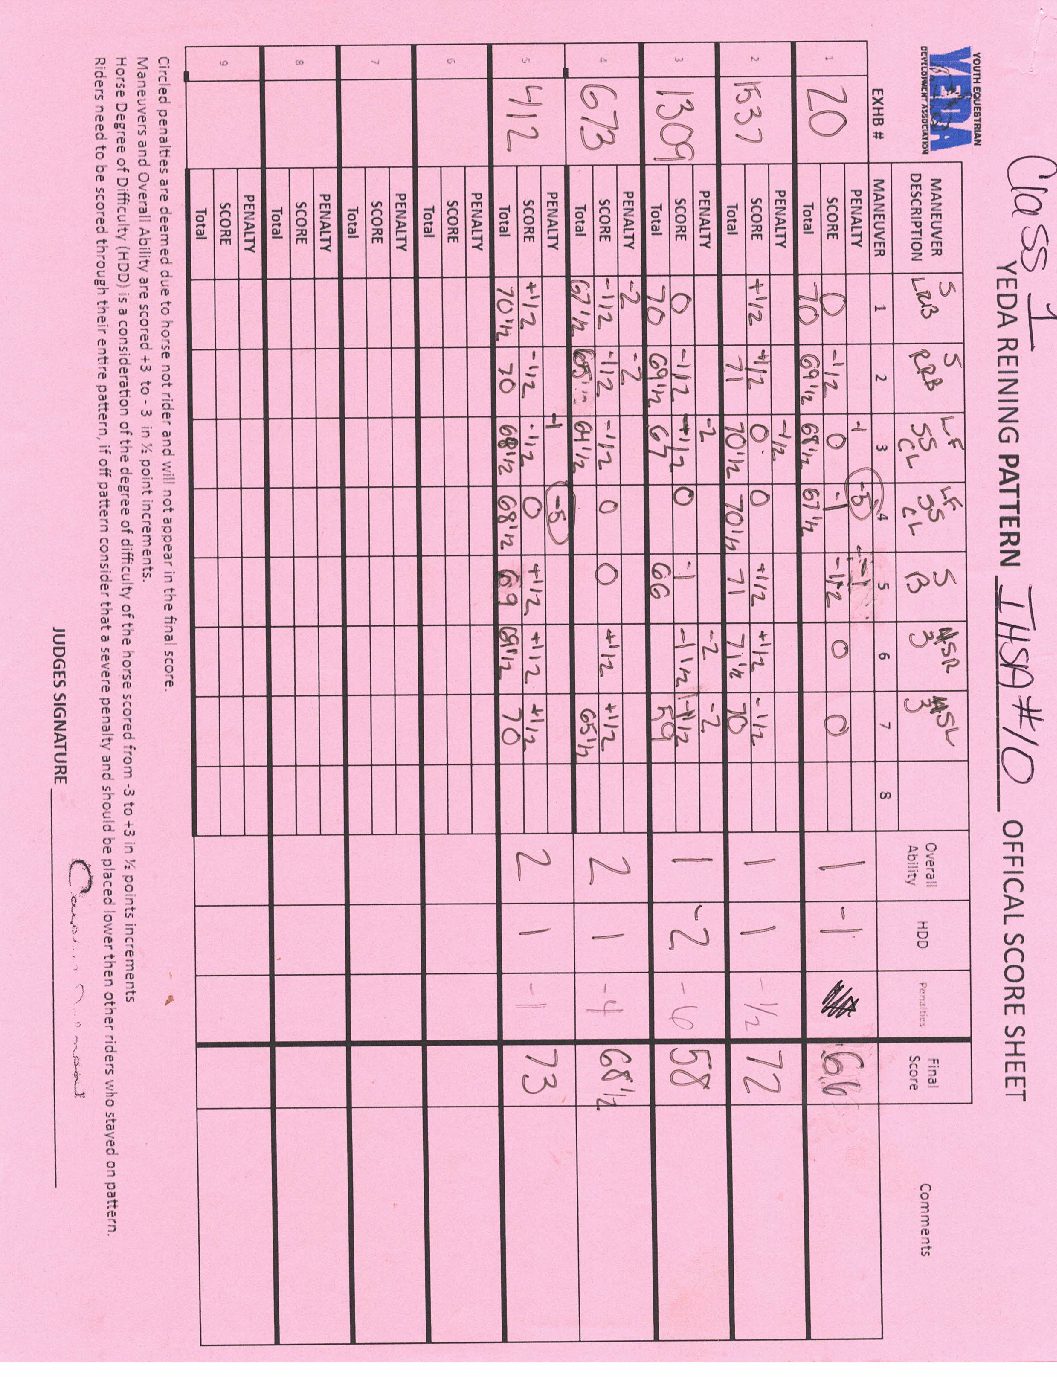 Class 1
YEDA REINING PATTERN IHSA #10 OFFICAL SCORE SHEET
YOUTH EQUESTRIAN
YEDA
DEVELOPMENT ASSOCIATION
MANEUVER DESCRIPTION S LRB S RRB LF SS CL LF SS CL S B SR 3 SL 3 Overall Ability HDD Penalties Final Score Comments
EXHB # MANEUVER 1 2 3 4 5 6 7 8
1 20 PENALTY -1 -5 -1
SCORE 0 -1/2 0 -1 -1/2 0 0 1 -1 66
Total 70 69 1/2 68 1/2 67 1/2
2 1537 PENALTY -1/2
SCORE +1/2 +1/2 0 0 +1/2 +1/2 -1/2 1 1 -1/2 72
Total 71 70 1/2 70 1/2 71 71 1/2 70
3 1309 PENALTY -2 -2 -2
SCORE 0 -1/2 +1/2 0 -1 -1 1/2 1 -2 -6 58
Total 70 69 1/2 67 66 59
4 673 PENALTY -2 -2
SCORE -1/2 -1/2 -1/2 0 0 +1/2 +1/2 2 1 -4 68 1/2
Total 67 1/2 64 1/2 65 1/2
5 412 PENALTY -1 -5
SCORE +1/2 -1/2 -1/2 0 +1/2 +1/2 +1/2 2 1 -1 73
Total 70 1/2 70 68 1/2 68 1/2 69 69 1/2 70
6 PENALTY
SCORE
Total
7 PENALTY
SCORE
Total
8 PENALTY
SCORE
Total
9 PENALTY
SCORE
Total
Circled penalties are deemed due to horse not rider and will not appear in the final score.
Maneuvers and Overall Ability are scored +3 to - 3 in ½ point increments.
Horse Degree of Difficulty (HDD) is a consideration of the degree of difficulty of the horse scored from -3 to +3 in ½ points increments
Riders need to be scored through their entire pattern, if off pattern consider that a severe penalty and should be placed lower then other riders who stayed on pattern.
JUDGES SIGNATURE